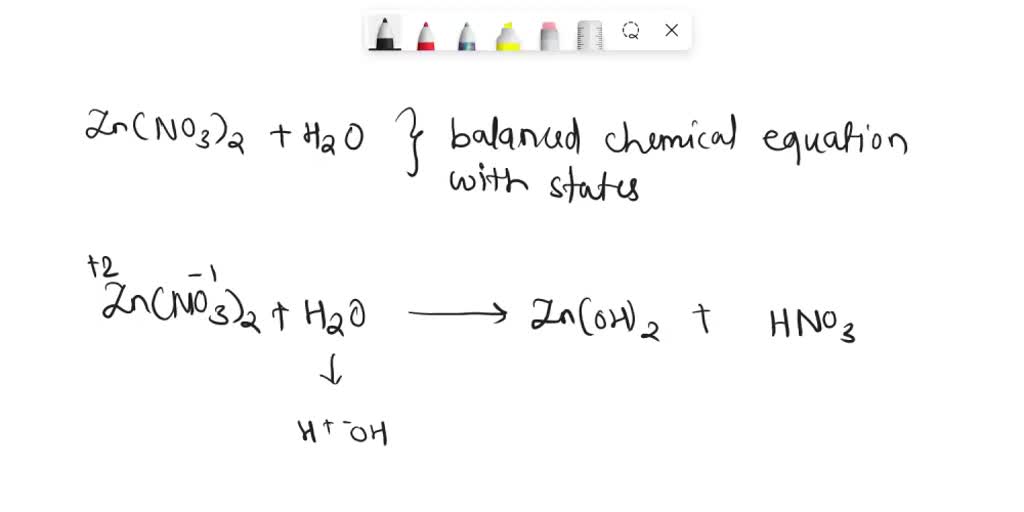 Zn(NO3)2 + H2O } balanced chemical equation
with states
+2 -1
Zn(NO3)2 + H2O ⟶ Zn(OH)2 + HNO3
↓
H+ -OH